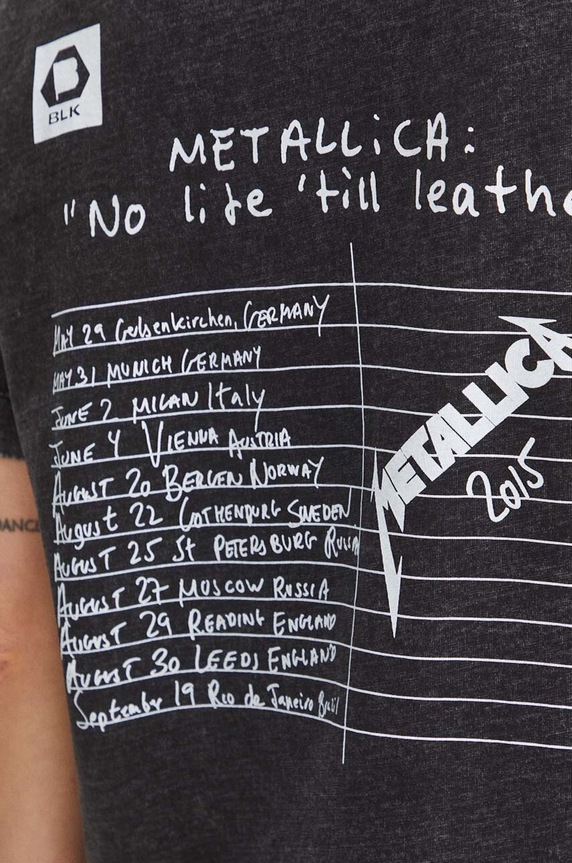 BLK
METALLiCA:
"No life 'till leathe
MAY 29 Gelsenkirchen, GERMANY
MAY 31 MUNICH GERMANY
JUNE 2 MILAN Italy
JUNE 4 VIENNA AUSTRIA
AUGUST 20 BERGEN NORWAY
AUGUST 22 GOTHENBURG SWEDEN
AUGUST 25 St PETERSBURG RUSSIA
AUGUST 27 MOSCOW RUSSIA
AUGUST 29 READING ENGLAND
AUGUST 30 LEEDS ENGLAND
September 19 Rio de Janeiro Brazil
METALLICA
2015